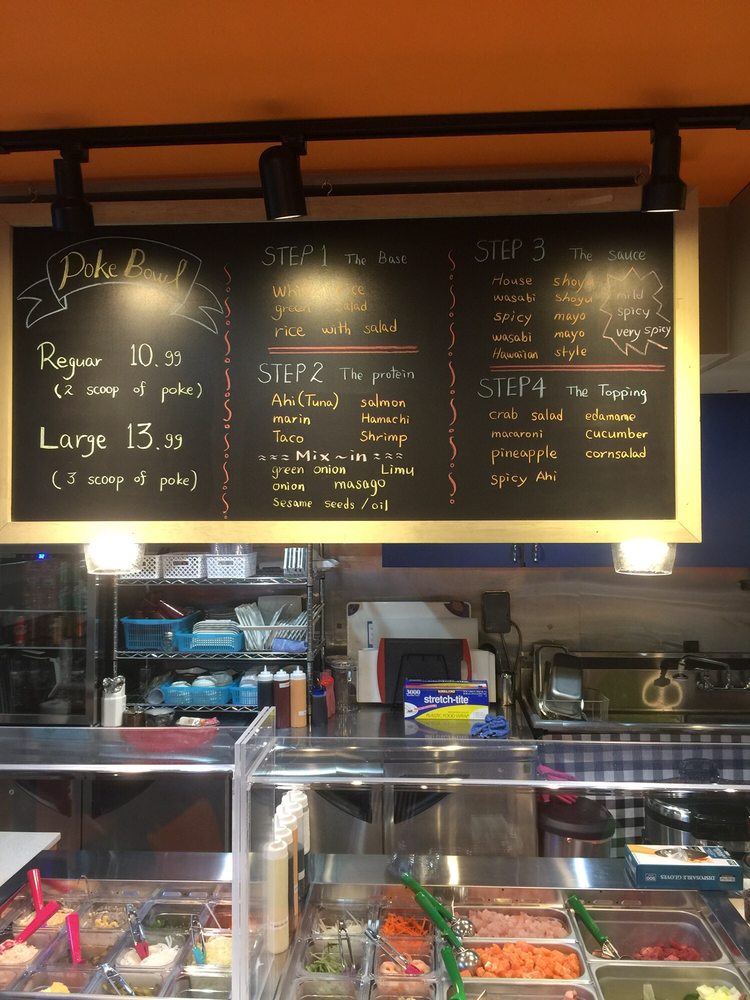 Poke Bowl
Reguar 10.99
(2 scoop of poke)
Large 13.99
(3 scoop of poke)
STEP 1 The Base
White rice
green salad
rice with salad
STEP 2 The protein
Ahi (Tuna) salmon
marin Hamachi
Taco Shrimp
Mix-in
green onion Limu
onion masago
Sesame seeds/oil
STEP 3 The sauce
House shoyu
wasabi shoyu
spicy mayo
wasabi mayo
Hawaiian style
mild
spicy
very spicy
STEP4 The Topping
crab salad edamame
macaroni cucumber
pineapple cornsalad
spicy Ahi
3000
KIRKLAND
stretch-tite
PLASTIC FOOD WRAP
DISPOSABLE GLOVES
500